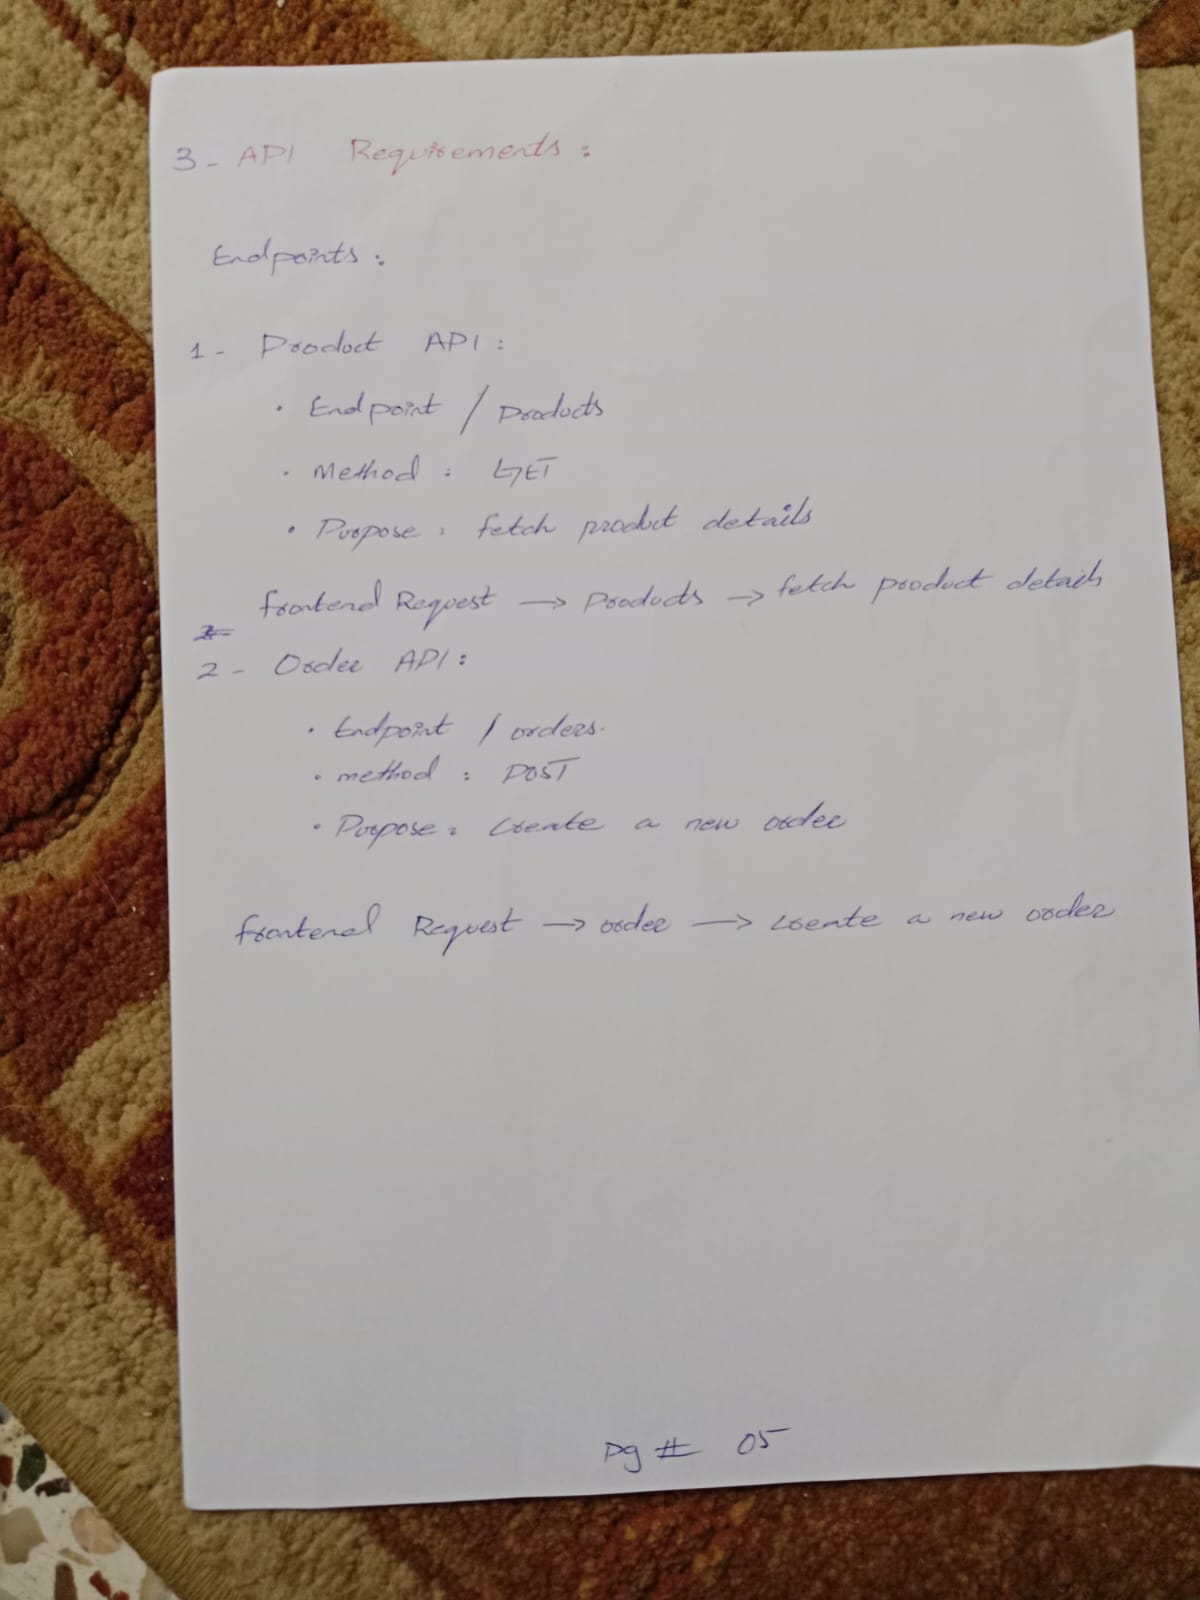 3- API Requirements :
Endpoints :
1- Product API :
• Endpoint / Products
• Method : GET
• Purpose : fetch product details
frontend Request → Products → fetch product details
2- Order API :
• Endpoint / orders.
• method : POST
• Purpose : create a new order
frontend Request → order → create a new order
Pg # 05